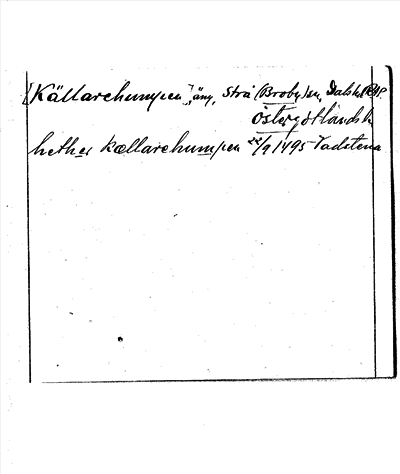 [Källarehumpen], äng, Strå (Broby) sn, Dals hd
Östergötlands l.
hether kællarehumpen 22/9 1495 Vadstena